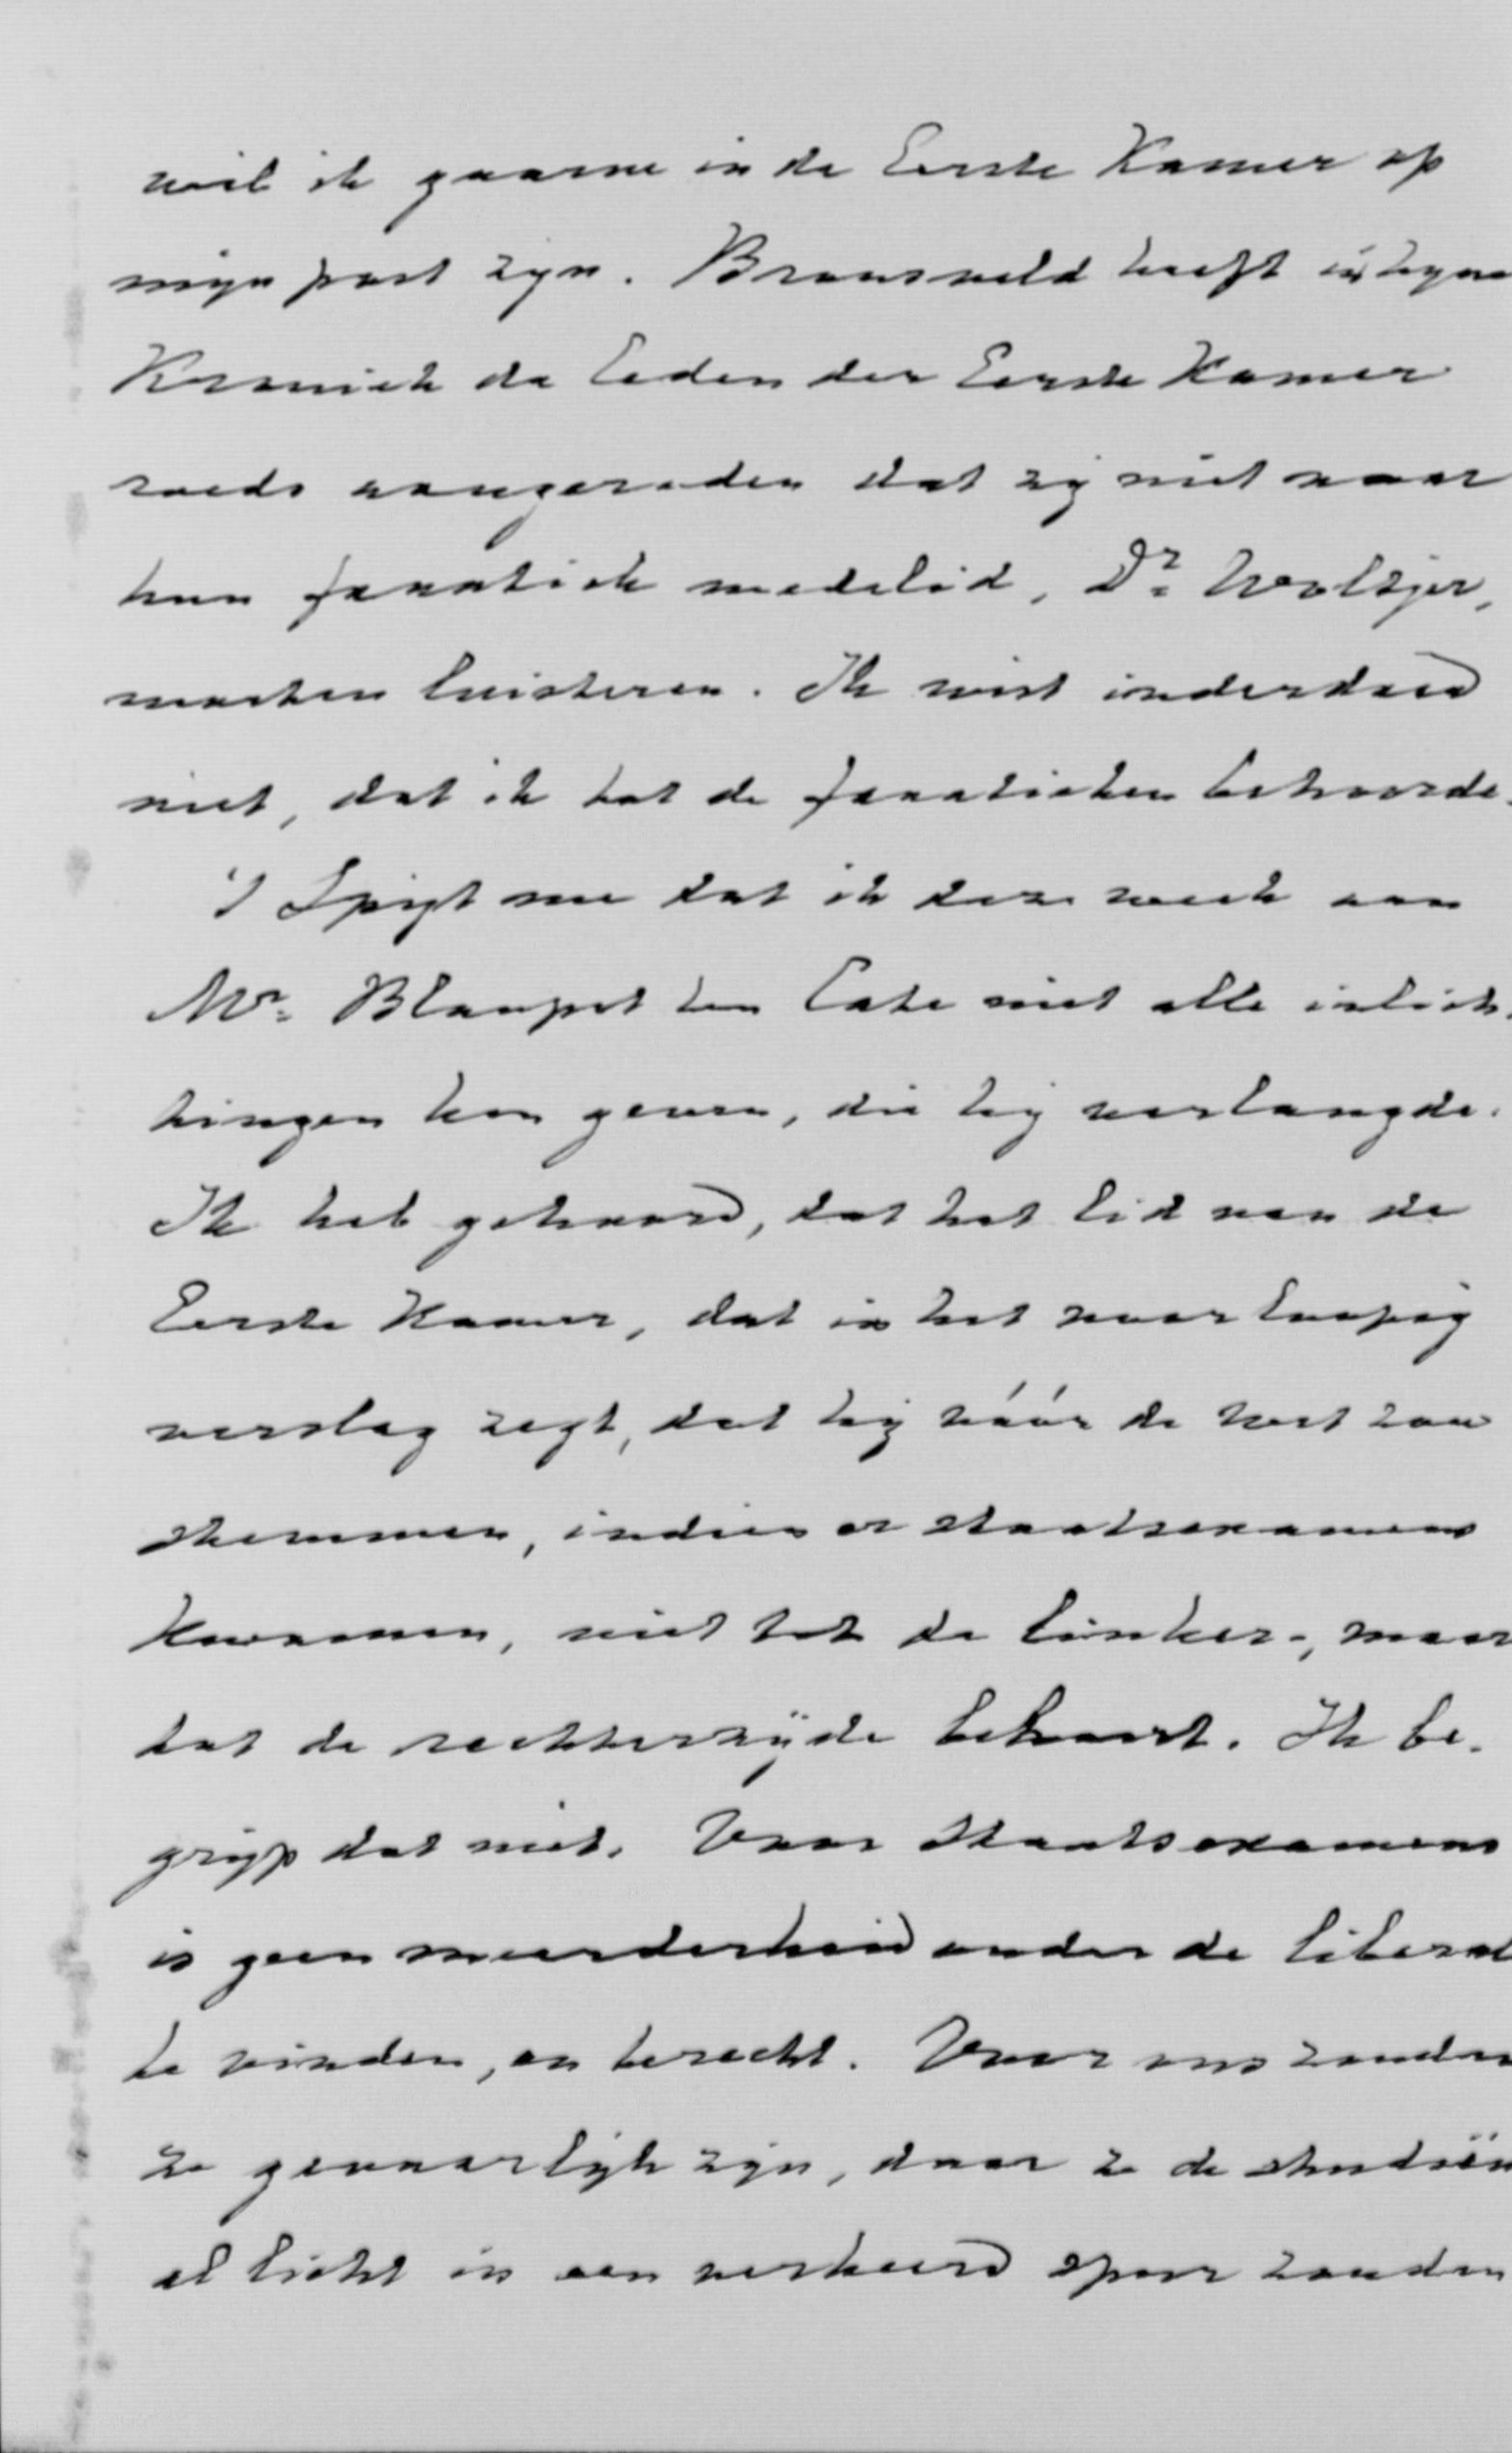 wil ik gaarne in de Eerste Kamer op
mijn post zijn. Bronsveld heeft in zijne
Kroniek de leden der Eerste Kamer
reeds aangeraden dat zij niet naar
hun fanatiek medelid, Dr. Woltjer,
moeten luisteren. Ik wist inderdaad
niet, dat ik tot de fanatieken behoorde.
't Spijt me dat ik deze week aan
Mr. Blaupot ten Cate niet alle inlich-
tingen kon geven, die hij verlangde.
Ik heb gehoord, dat het lid van de
Eerste Kamer, dat in het voorloopig
verslag zegt, dat hij vóór de wet zou
stemmen, indien er staatsexamens
kwamen, niet tot de linker-, maar
tot de rechterzijde behoort. Ik be-
grijp dat niet. Voor Staatsexamens
is geen meerderheid onder de liberal
te vinden, en terecht. Voor ons zouden
ze gevaarlijk zijn, daar ze de studiën
al licht in een verkeerd spoor zouden